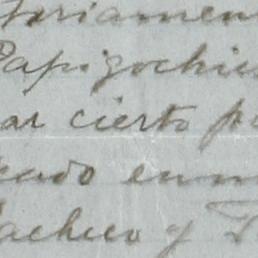 toriamen
Papigochi
ar cierto p
cado en m
Pacheco y T